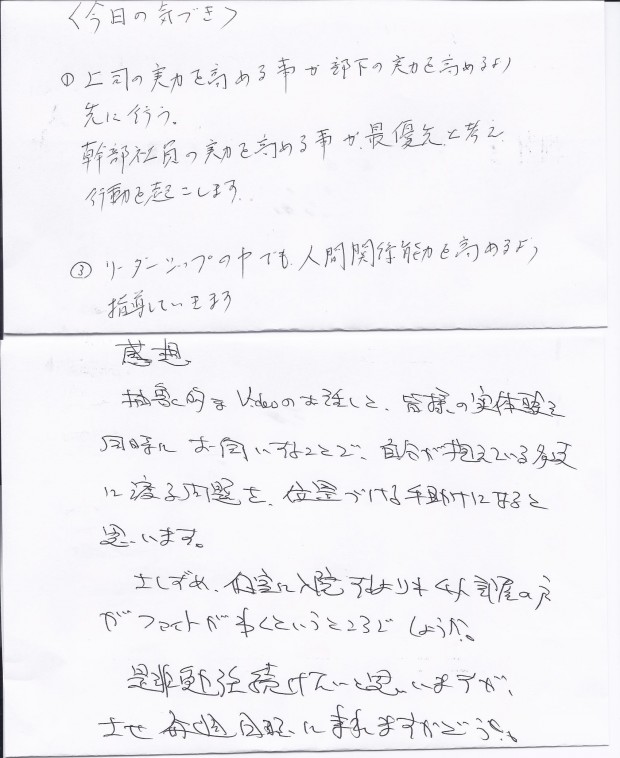 〈今日の気づき〉
① 上司の実力を高める事が部下の実力を高めるより
先に行う。
幹部社員の実力を高める事が、最優先と考え
行動を起こします
③ リーダーシップの中でも、人間関係能力を高めるよう
指導していきます
感想
抽象的なVideoのお話しと、皆様の実体験を
同時にお伺いすることで、自分が抱えている多岐
に渡る問題を、位置づける手助けになると
思います。
さしずめ、個室に入院するよりも 部屋の方
がファイトがわくというところでしょうか。
是非勉強続けたいと思いますが、
さて 毎週 に来れますかどうか。